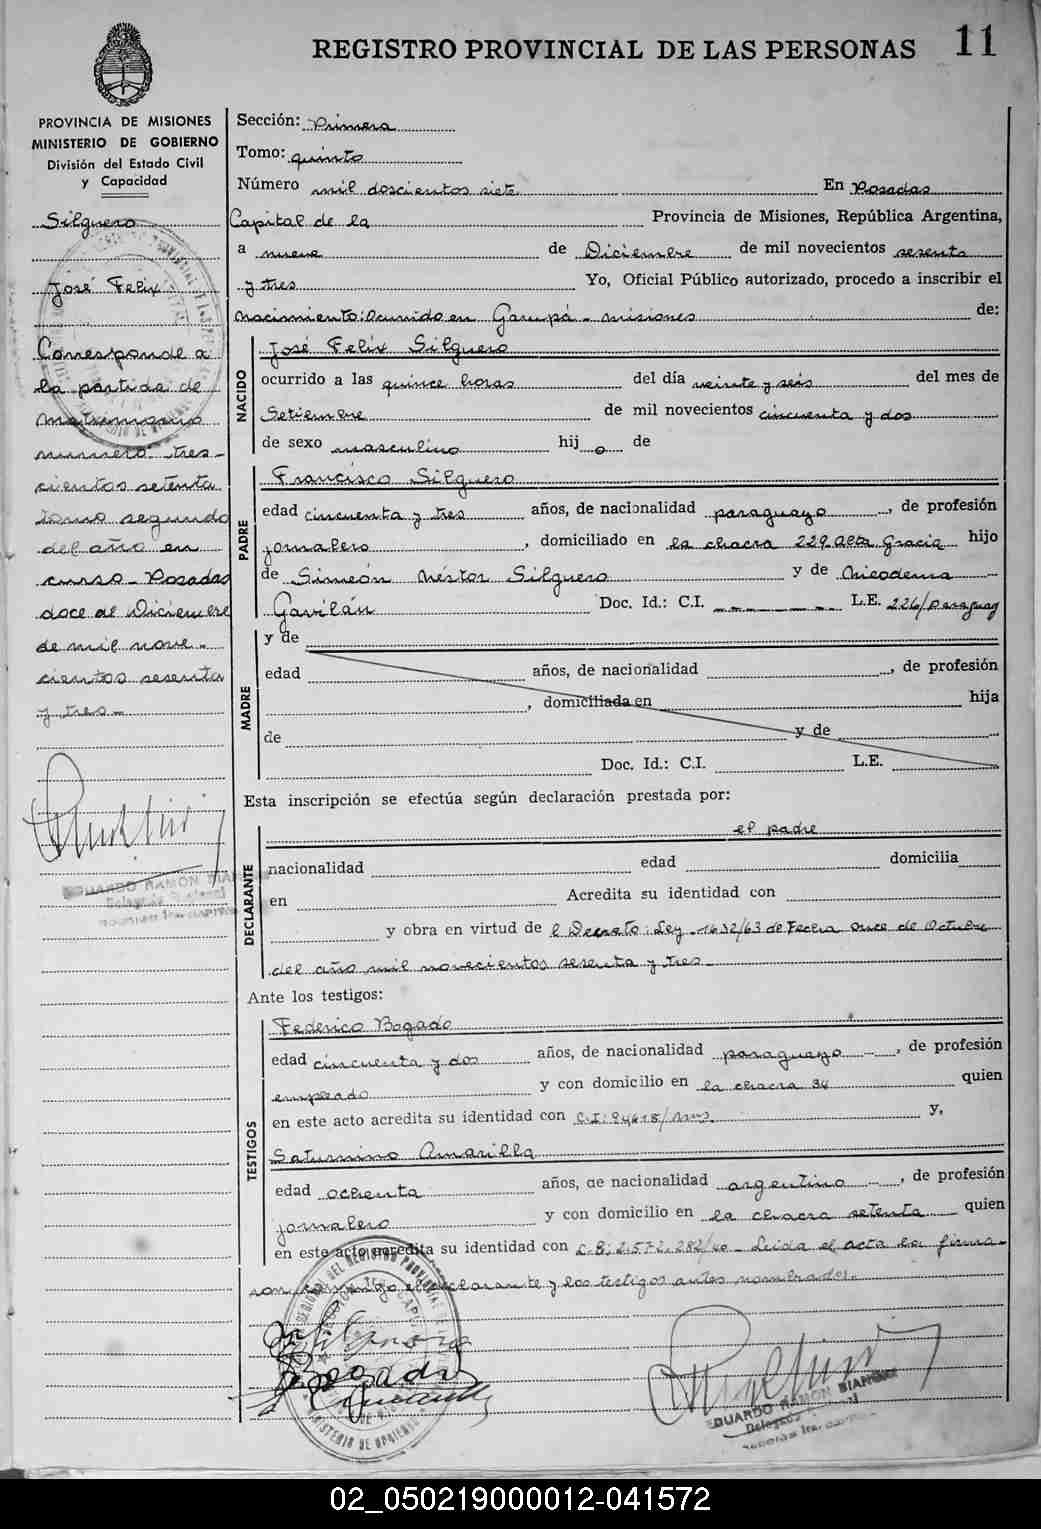 REGISTRO PROVINCIAL DE LAS PERSONAS 11
PROVINCIA DE MISIONES
MINISTERIO DE GOBIERNO
División del Estado Civil
y Capacidad
Silguero
José Felix
Corresponde a
la partida de
matrimonio
número tres-
cientos setenta
Tomo segundo
del año en
curso - Posadas
doce de Diciembre
de mil nove-
cientos sesenta
y tres -
EDUARDO RAMÓN BIANCHI
Sección: Primera
Tomo: quinto
Número mil doscientos siete En Posadas
Capital de la Provincia de Misiones, República Argentina,
a nueve de Diciembre de mil novecientos sesenta
y tres Yo, Oficial Público autorizado, procedo a inscribir el
nacimiento: Ocurrido en Garupá - misiones de:
NACIDO
José Felix Silguero
ocurrido a las quince horas del día veinte y seis del mes de
Setiembre de mil novecientos cincuenta y dos
de sexo masculino hij o de
PADRE
Francisco Silguero
edad cincuenta y tres años, de nacionalidad paraguayo, de profesión
jornalero, domiciliado en la chacra 229 Alta Gracia hijo
de Simeón Néstor Silguero y de Nicodema
Gavilán Doc. Id.: C.I. L.E. 226/Paraguay
MADRE
y de
edad años, de nacionalidad , de profesión
, domiciliada en hija
de y de
Doc. Id.: C.I. L.E.
Esta inscripción se efectúa según declaración prestada por:
DECLARANTE
el padre
nacionalidad edad domicilia
en Acredita su identidad con
y obra en virtud de l Decreto: Ley - 1632/63 de Fecha once de Octubre
del año mil novecientos sesenta y tres -
Ante los testigos:
TESTIGOS
Federico Bogado
edad cincuenta y dos años, de nacionalidad paraguayo, de profesión
empleado y con domicilio en la chacra 34 quien
en este acto acredita su identidad con C.I: y,
Saturnino Amarilla
edad ochenta años, de nacionalidad argentino, de profesión
jornalero y con domicilio en la chacra setenta quien
en este acto acredita su identidad con 2.572.282/ Leida el acta la firma-
el declarante y los testigos antes nombrados.-
Bogado
EDUARDO RAMÓN BIANCHI
02_050219000012-041572